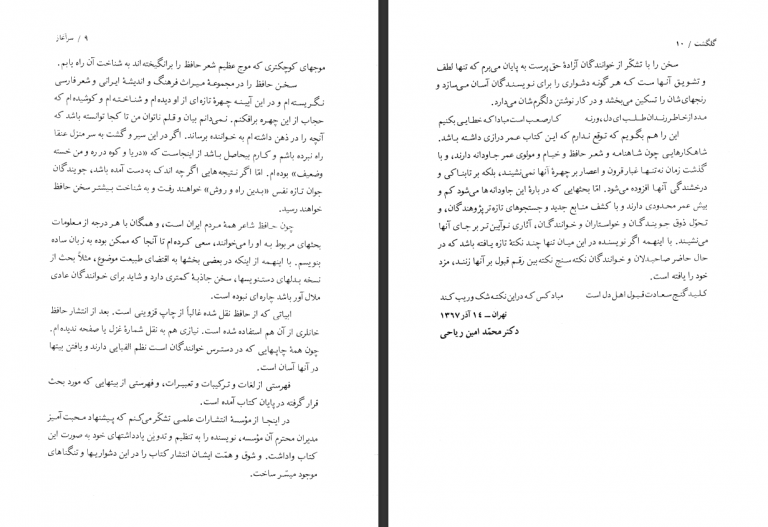 ۹ / سرآغاز
موجهای کوچکتری که موج عظیم شعر حافظ را برانگیخته‌اند به شناخت آن راه یابم.
سخن حافظ را در مجموعهٔ میراث فرهنگ و اندیشهٔ ایرانی و شعر فارسی
نگریسته‌ام و در این آیینه چهرهٔ تازه‌ای از او دیده‌ام و شناخته‌ام و کوشیده‌ام که
حجاب از این چهره برافکنم. نمی‌دانم بیان و قلم ناتوان من تا کجا توانسته باشد که
آنچه را در ذهن داشته‌ام به خواننده برساند. اگر در این سیر و گشت به سر منزل عنقا
راه نبرده باشم و کارم بیحاصل باشد از اینجاست که «دریا و کوه در ره و من خسته
وضعیف» بوده‌ام. امّا اگر نتیجه‌هایی اگرچه اندک به‌دست آمده باشد، جویندگان
جوان تازه نفس «بدین راه و روش» خواهند رفت و به شناخت بیشتر سخن حافظ
خواهند رسید.
چون حافظ شاعر همهٔ مردم ایران است، و همگان با هر درجه از معلومات
بحثهای مربوط به او را می‌خوانند، سعی کرده‌ام تا آنجا که ممکن بوده به زبان ساده
بنویسم. با اینهمه از اینکه در بعضی بخشها به اقتضای طبیعت موضوع، مثلاً بحث از
نسخه بدلهای دستنویسها، سخن جاذبهٔ کمتری دارد و شاید برای خوانندگان عادی
ملال آور باشد چاره ای نبوده است.
ابیاتی که از حافظ نقل شده غالباً از چاپ قزوینی است. بعد از انتشار حافظ
خانلری از آن هم استفاده شده است. نیازی هم به نقل شمارهٔ غزل یا صفحه ندیده‌ام.
چون همهٔ چاپهایی که در دسترس خوانندگان است نظم الفبایی دارند و یافتن بیتها
در آنها آسان است.
فهرستی از لغات و ترکیبات و تعبیرات، و فهرستی از بیتهایی که مورد بحث
قرار گرفته در پایان کتاب آمده است.
در اینجا از مؤسسهٔ انتشارات علمی تشکّر می‌کنم که پیشنهاد محبت‌آمیز
مدیران محترم آن مؤسسه، نویسنده را به تنظیم و تدوین یادداشتهای خود به صورت این
کتاب واداشت. و شوق و همّت ایشان انتشار کتاب را در این دشواریها و تنگناهای
موجود میسّر ساخت.
گلگشت / ۱۰
سخن را با تشکّر از خوانندگان آزادهٔ حق‌پرست به پایان می‌برم که تنها لطف
و تشویق آنها ست که هر گونه دشواری را برای نویسندگان آسان می‌سازد و
رنجهای شان را تسکین می‌بخشد و در کار نوشتن دلگرم‌شان می‌دارد.
مدد از خاطر رندان طلب ای دل، ورنه کار صعب است مبادا که خطایی بکنیم
این را هم بگویم که توقع ندارم که این کتاب عمر درازی داشته باشد.
شاهکارهایی چون شاهنامه و شعر حافظ و خیام و مولوی عمر جاودانه دارند، و با
گذشت زمان نه‌تنها غبار قرون و اعصار بر چهرهٔ آنها نمی‌نشیند، بلکه بر تابناکی و
درخشندگی آنها افزوده می‌شود. امّا بحثهایی که در بارهٔ این جاودانه ها می‌شود کم و
بیش عمر محدودی دارند و با کشف منابع جدید و جستجوهای تازه‌تر پژوهندگان، و
تحوّل ذوق جویندگان و خواستاران و خوانندگان، آثاری نوآیین‌تر بر جای آنها
می‌نشیند. با اینهمه اگر نویسنده در این میان تنها چند نکتهٔ تازه یافته باشد که در
حال حاضر صاحبدلان و خوانندگان نکته سنج نکته بین رقم قبول بر آنها زنند، مزد
خود را یافته است.
کلید گنج سعادت قبول اهل دل است مباد کس که در این نکته شک و ریب کند
تهران ــ ۱۴ آذر ۱۳۶۷
دکتر محمّد امین ریاحی